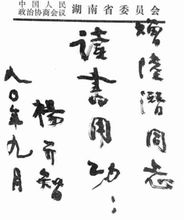 中国人民
政治协商会议 湖南省委员会
赠陆潜同志
读书用功：
杨开智
八〇年九月